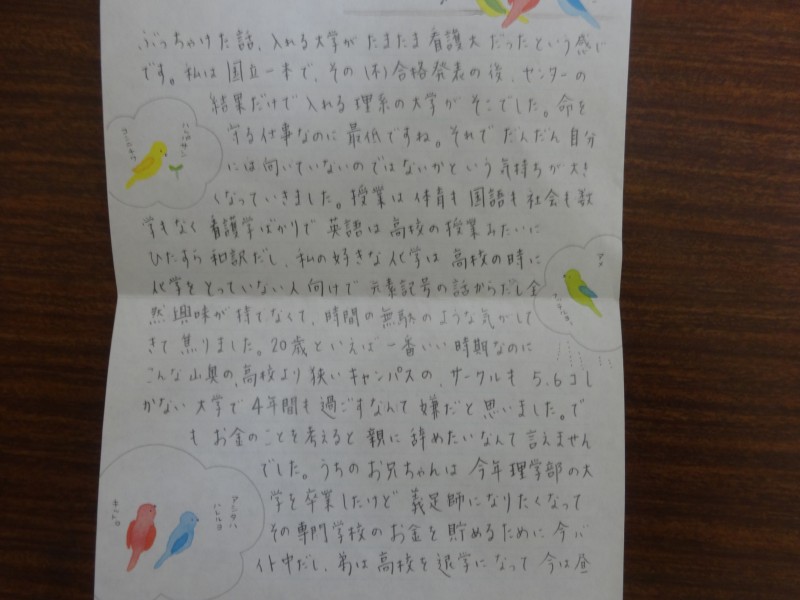 ぶっちゃけた話、入れる大学がたまたま看護大だったという感じ
です。私は国立一本で、その(不)合格発表の後、センターの
結果だけで入れる理系の大学がそこでした。命を
守る仕事なのに最低ですね。それでだんだん自分
には向いていないのではないかという気持ちが大き
くなっていきました。授業は体育も国語も社会も数
学もなく看護学ばかりで英語は高校の授業みたいに
ひたすら和訳だし、私の好きな化学は高校の時に
化学をとっていない人向けで元素記号の話からだし全
然興味が持てなくて、時間の無駄のような気がして
きて焦りました。20歳といえば一番いい時期なのに
こんな山奥の、高校より狭いキャンパスの、サークルも5、6コし
かない大学で4年間も過ごすなんて嫌だと思いました。で
も お金のことを考えると親に辞めたいなんて言えません
でした。うちのお兄ちゃんは今年理学部の大
学を卒業したけど義足師になりたくなって
その専門学校のお金を貯めるために今バ
イト中だし、弟は高校を退学になって今は昼
アメ
アシタハ
ハレルヨ